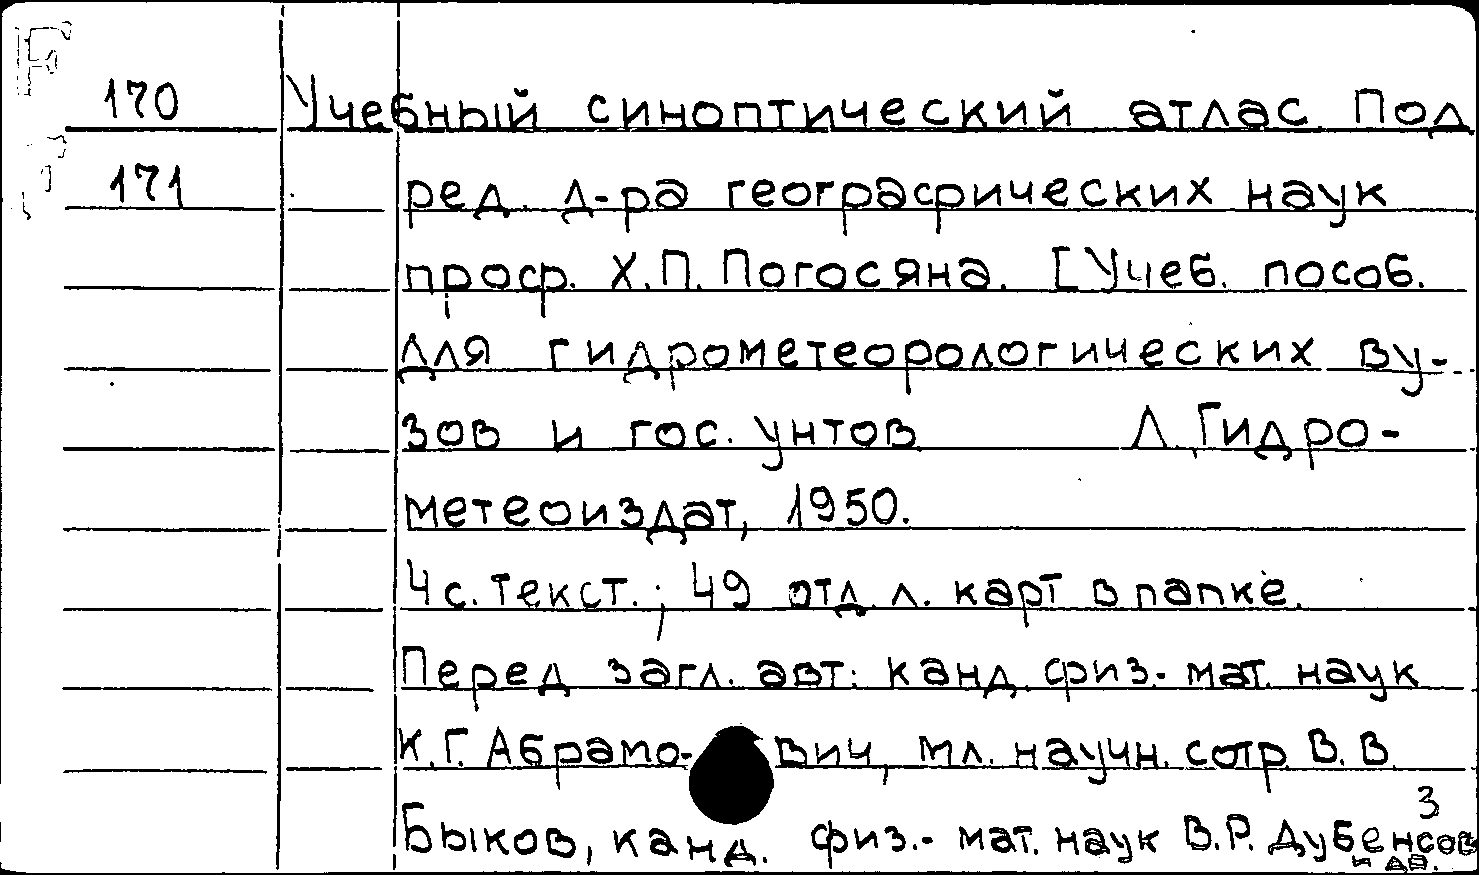 F
170 Учебный синоптический атлас Под
171 ред. д-ра географических наук
проф. Х.П. Погосяна. [Учеб. пособ.
для гидрометеорологических ву-
зов и гос. унтов Л. Гидро-
метеоиздат, 1950.
4 с. текст.; 49 отд. л. карт в папке.
Перед загл. авт: канд. физ.- мат. наук
К.Г. Абрамо-вич, мл. научн. сотр. В.В.
Быков, канд. физ.- мат. наук В.Р. Дубенсов
3
и др.